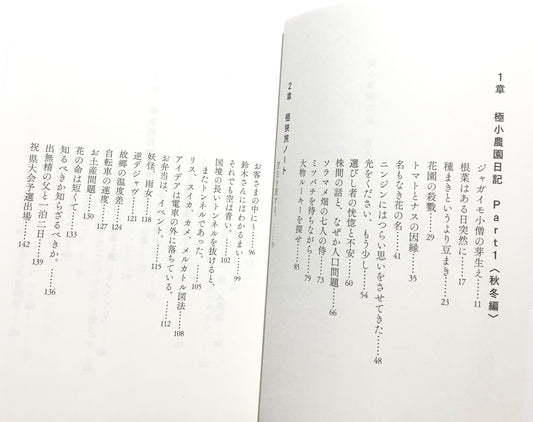 1章　極小農園日記　Part1〈秋冬編〉
ジャガイモ小僧の芽生え……11
根菜はある日突然に……17
種まきというより豆まき……23
花園の殺戮……29
トマトとナスの因縁……35
名もなき花の名……41
ニンジンにはつらい思いをさせてきた……48
光をください、もう少し……54
選びし者の恍惚と不安……60
株間の話と、なぜか人口問題……66
ソラマメ畑の七人の侍……73
ミツバチを待ちながら……79
大物ルーキーを探せ……85
2章　極狭旅ノート
お客さまの中に……96
鈴木さんにはわかるまい……99
それでも空は青い。……102
国境の長いトンネルを抜けると、
またトンネルであった。……105
リス、スイカ、カメ、メルカトル図法……108
アイデアは電車の外に落ちている。……112
お弁当は、イベント。……115
妖怪、雨女……118
逆デジャヴ……121
故郷の温度差……124
自転車の速度……127
お土産問題……130
花の命は短くて……133
知るべきか知らざるべきか。……136
出無精の父と一泊二日……139
祝・県大会予選出場……142